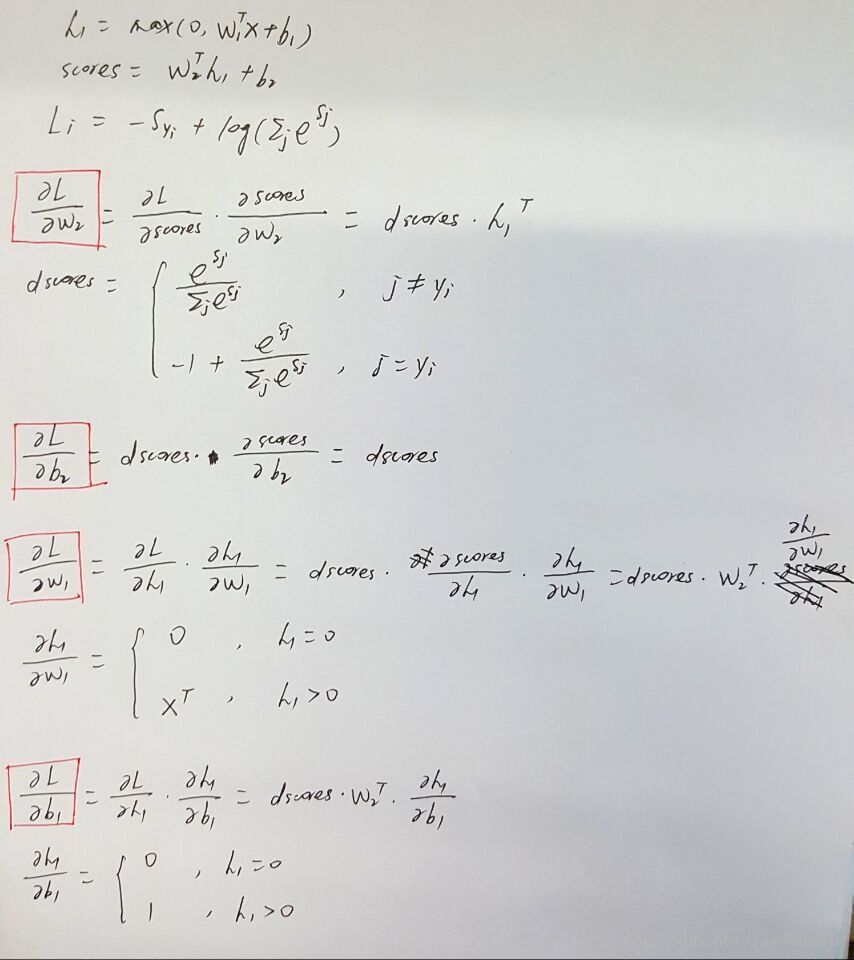 h₁ = max(0, W₁ᵀx + b₁)
scores = W₂ᵀh₁ + b₂
Lᵢ = -S_yᵢ + log(Σⱼe^Sⱼ)
∂L/∂W₂ = ∂L/∂scores · ∂scores/∂W₂ = dscores · h₁ᵀ
dscores = { e^Sⱼ/Σⱼe^Sⱼ , j ≠ yᵢ
-1 + e^Sⱼ/Σⱼe^Sⱼ , j = yᵢ
∂L/∂b₂ = dscores · ∂scores/∂b₂ = dscores
∂L/∂W₁ = ∂L/∂h₁ · ∂h₁/∂W₁ = dscores · ∂scores/∂h₁ · ∂h₁/∂W₁ = dscores · W₂ᵀ · ∂h₁/∂W₁
∂h₁/∂W₁ = { 0 , h₁ = 0
xᵀ , h₁ > 0
∂L/∂b₁ = ∂L/∂h₁ · ∂h₁/∂b₁ = dscores · W₂ᵀ · ∂h₁/∂b₁
∂h₁/∂b₁ = { 0 , h₁ = 0
1 , h₁ > 0